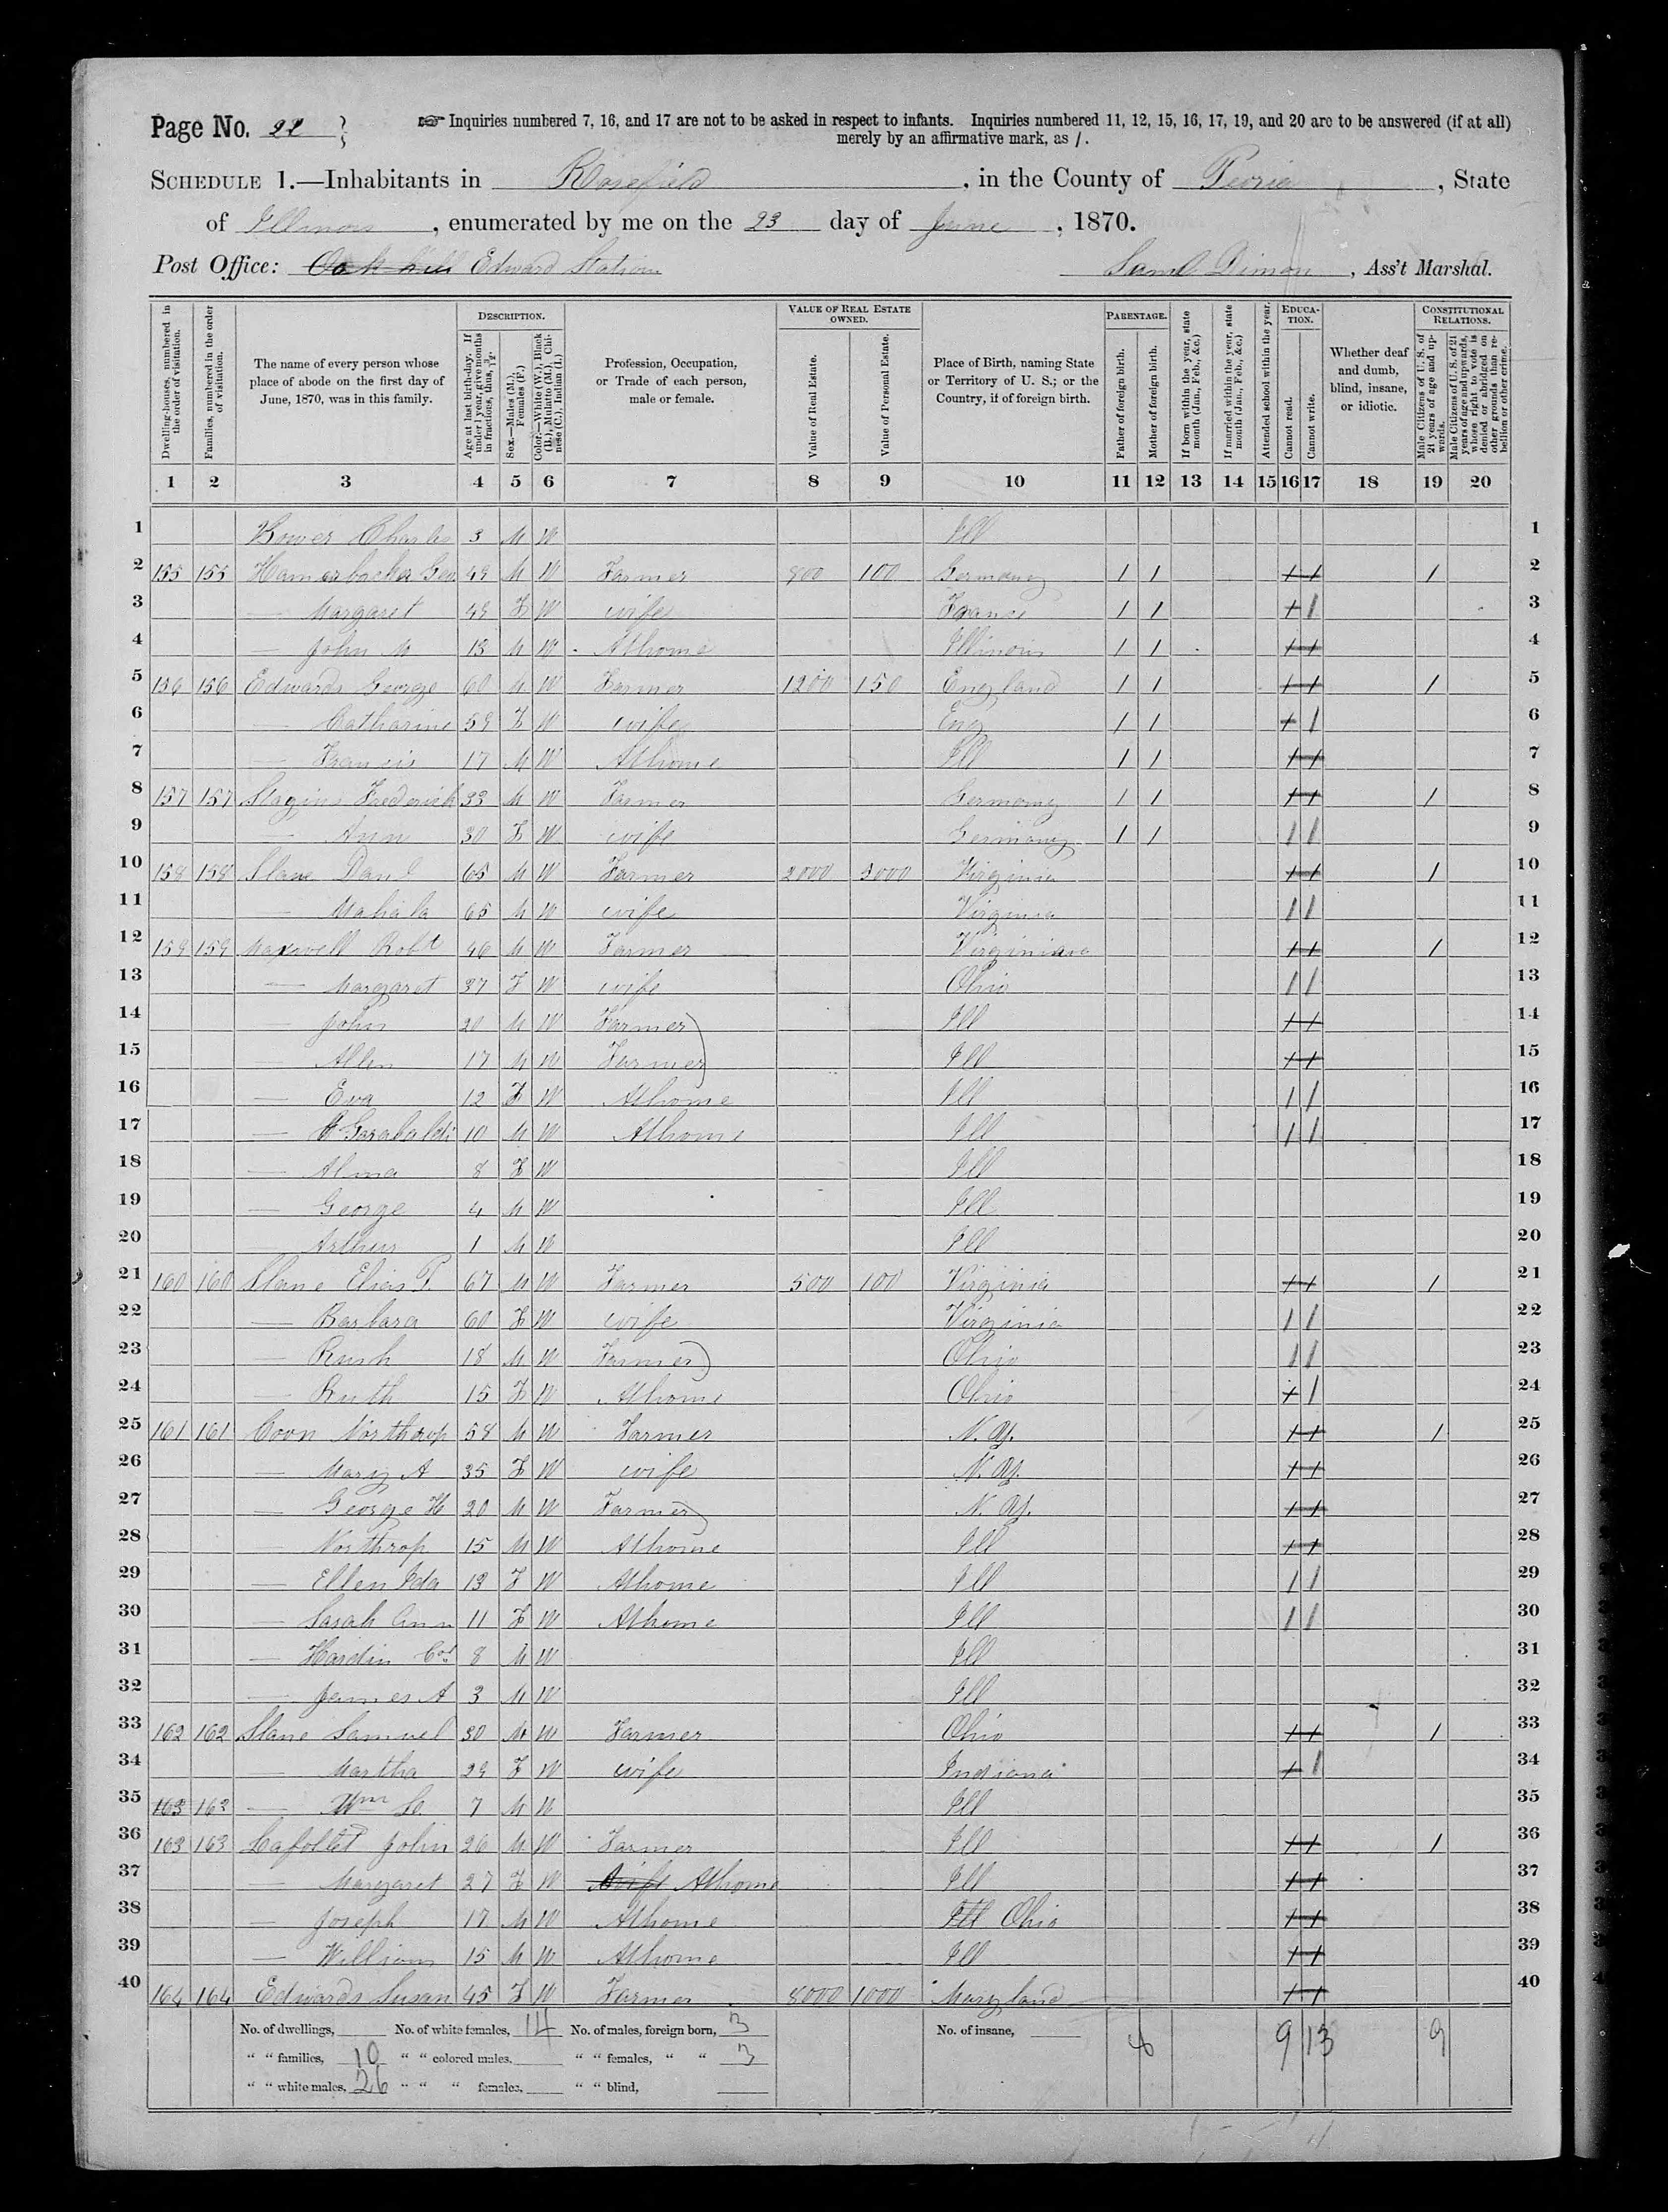 Page No. 22
☞ Inquiries numbered 7, 16, and 17 are not to be asked in respect to infants. Inquiries numbered 11, 12, 15, 16, 17, 19, and 20 are to be answered (if at all)
merely by an affirmative mark, as /.
SCHEDULE 1.—Inhabitants in Rosefield, in the County of Peoria, State
of Illinois, enumerated by me on the 23 day of June, 1870.
Post Office: Oak hill Edward Station Saml Dimon, Ass't Marshal.
Dwelling-houses, numbered in the order of visitation.
Families, numbered in the order of visitation.
The name of every person whose place of abode on the first day of June, 1870, was in this family.
DESCRIPTION.
Age at last birth-day. If under 1 year, give months in fractions, thus, 3/12.
Sex.—Males (M.), Females (F.)
Color.—White (W.), Black (B.), Mulatto (M.), Chinese (C.), Indian (I.)
Profession, Occupation, or Trade of each person, male or female.
VALUE OF REAL ESTATE OWNED.
Value of Real Estate.
Value of Personal Estate.
Place of Birth, naming State or Territory of U. S.; or the Country, if of foreign birth.
PARENTAGE.
Father of foreign birth.
Mother of foreign birth.
If born within the year, state month (Jan., Feb., &c.)
If married within the year, state month (Jan., Feb., &c.)
Attended school within the year.
EDUCATION.
Cannot read.
Cannot write.
Whether deaf and dumb, blind, insane, or idiotic.
CONSTITUTIONAL RELATIONS.
Male Citizens of U. S. of 21 years of age and upwards.
Male Citizens of U. S. of 21 years of age and upwards, whose right to vote is denied or abridged on other grounds than rebellion or other crime.
1 2 3 4 5 6 7 8 9 10 11 12 13 14 15 16 17 18 19 20
1 Bower Charles 3 M W Ill 1
2 155 155 Hamerbacher Geo 49 M W Farmer 800 100 Germany 1 1 1 1 1 2
3 — Margaret 49 F W wife France 1 1 1 1 3
4 — John M 13 M W At home Illinois 1 1 1 1 4
5 156 156 Edwards George 60 M W Farmer 1200 150 England 1 1 1 1 1 5
6 — Catharine 59 F W wife Eng 1 1 1 1 6
7 — Francis 17 M W At home Ill 1 1 1 1 7
8 157 157 Frederick 33 M W Farmer Germany 1 1 1 1 1 8
9 — Ann 30 F W wife Germany 1 1 1 1 9
10 158 158 Slane Danl 65 M W Farmer 2000 Virginia 1 1 1 10
11 — Mahala 65 M W wife Virginia 1 1 11
12 159 159 Maxwell Robt 46 M W Farmer 1 1 1 12
13 — Margaret 37 F W wife Ohio 1 1 13
14 — John 20 M W Farmer Ill 1 1 14
15 — Allen 17 M W Farmer Ill 1 1 15
16 — Eva 12 F W At home Ill 1 1 16
17 — Garabaldi 10 M W At home Ill 1 1 17
18 — Alma 8 F W Ill 18
19 — George 4 M W Ill 19
20 — Arthur 1 M W Ill 20
21 160 160 Slane Elias P. 67 M W Farmer 500 100 Virginia 1 1 1 21
22 — Barbara 60 F W wife Virginia 1 1 22
23 — Rush 18 M W Farmer Ohio 1 1 23
24 — Ruth 15 F W At home Ohio 1 1 24
25 161 161 Coon Northrop 58 M W Farmer N. Y. 1 1 1 25
26 — Mary A 35 F W wife N. Y. 1 1 26
27 — George H 20 M W Farmer N. Y. 1 1 27
28 — Northrop 15 M W At home Ill 1 1 28
29 — Ellen Ida 13 F W At home Ill 1 1 29
30 — Sarah Ann 11 F W At home Ill 1 1 30
31 — Hardin Col 8 M W Ill 31
32 — James A 3 M W Ill 32
33 162 162 Slane Samuel 30 M W Farmer Ohio 1 1 1 33
34 — Martha 29 F W wife Indiana 1 1 34
35 163 163 — Wm 7 M W Ill 35
36 163 163 Lafollet John 26 M W Farmer Ill 1 1 1 36
37 — Margaret 27 F W Wife At home Ill 1 1 37
38 — Joseph 17 M W At home Ill Ohio 1 1 38
39 — William 15 M W At home Ill 1 1 39
40 164 164 Edwards Susan 45 F W Farmer 8000 1000 Maryland 1 1 40
No. of dwellings, No. of white females, 14 No. of males, foreign born, 3 No. of insane, 6 9 13 9
" " families, 10 " " colored males. " " females, " " 3
" " white males, 26 " " " females, " " blind,